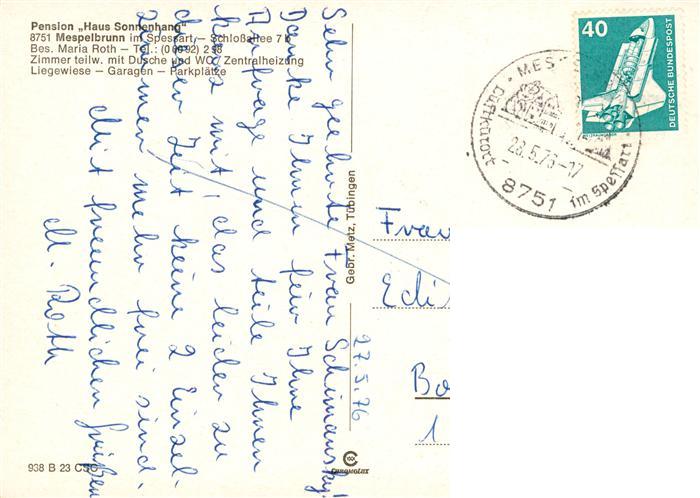 Pension „Haus Sonnenhang"
8751 Mespelbrunn im Spessart – Schloßallee 7b
Bes. Maria Roth – Tel.: (0 60 92) 2 98
Zimmer teilw. mit Dusche und WC, Zentralheizung
Liegewiese – Garagen – Parkplätze
Sehr geehrte Frau Schimansky!
Danke Ihnen für Ihre
Anfrage und teile Ihnen
kurz mit, das leider zu
dieser Zeit keine 2 Einzel-
zimmer mehr frei sind.
Mit freundlichen Grüßen
M. Roth
938 B 23 CSC
Gebr. Metz, Tübingen
CHROMOLUX
27.5.76
Frau
Edi
Bo
1
40
DEUTSCHE BUNDESPOST
MES
Luftkurort
28.5.76-17
8751 im Spessart